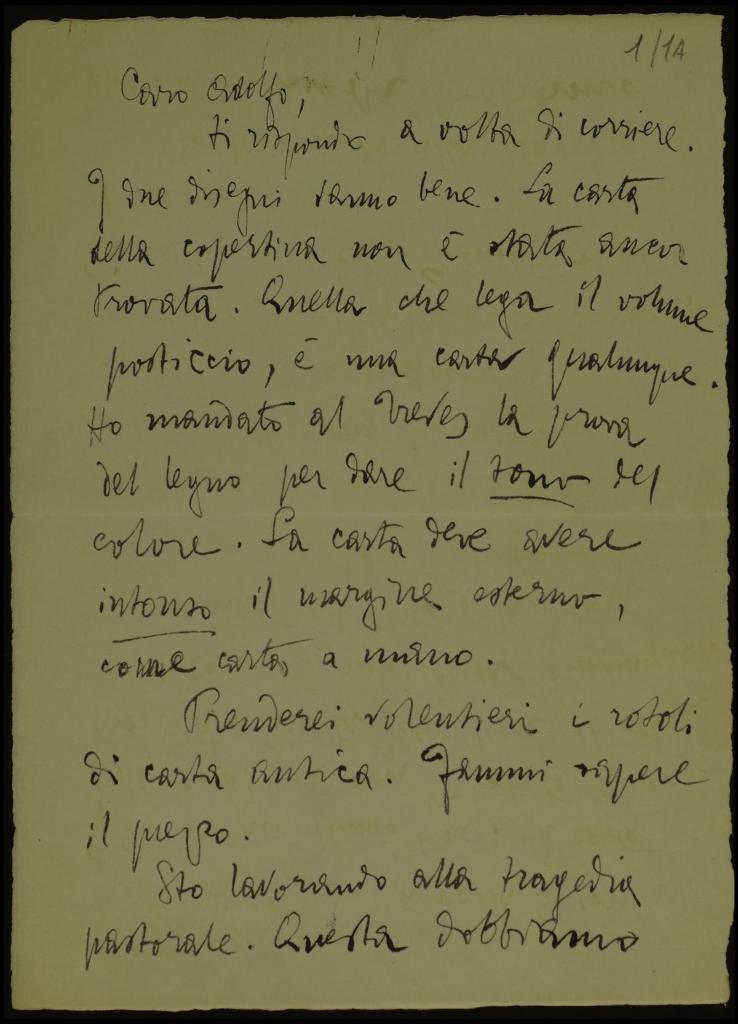 1/1A
Caro Adolfo,
ti rispondo a volta di corriere.
I due disegni vanno bene. La carta
della copertina non è stata ancor
trovata. Quella che lega il volume
posticcio, è una carta qualunque.
Ho mandato al Treves la prova
del legno per dare il tono del
colore. La carta deve avere
intonso il margine esterno,
come carta a mano.
Prenderei volentieri i rotoli
di carta antica. Fammi sapere
il prezzo.
Sto lavorando alla tragedia
pastorale. Questa dobbiamo